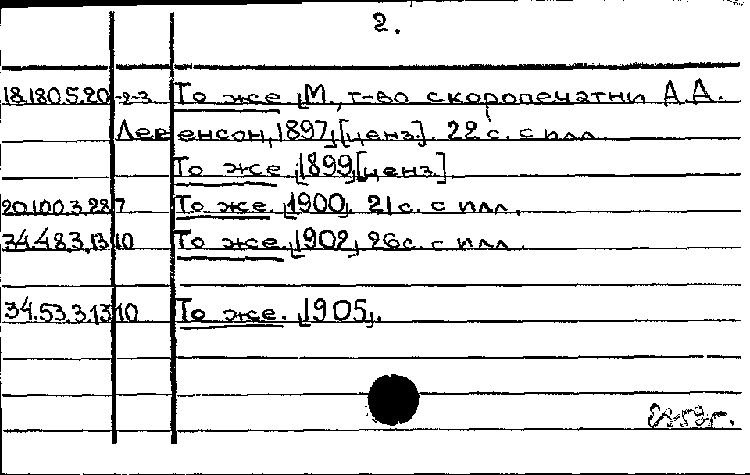 2.
18.180.5.20 -2-3 То же [М., т-во скоропечатни А.А.
Левенсон, 1897,[ценз]. 22 с. с илл.
То же [1899[ценз]
20.100.3.287 То же. [1900, 21 с. с илл.
34.483.1310 То же. [1902, 26 с. с илл.
34.53.3.1310 То же. [1905].